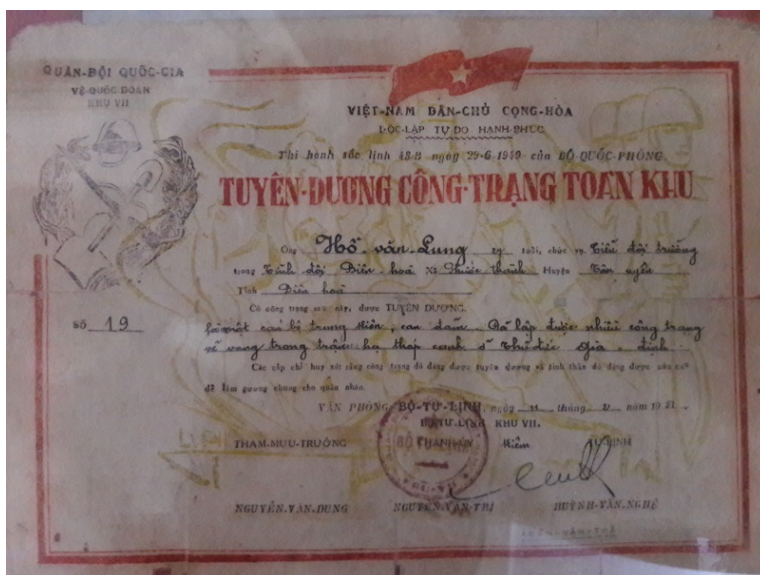 QUÂN-ĐỘI QUỐC-GIA
VỆ-QUỐC ĐOÀN
KHU VII
VIỆT-NAM DÂN-CHỦ CỘNG-HÒA
ĐỘC-LẬP TỰ DO HẠNH-PHÚC
Thi hành sắc lịnh ngày 25-6-1949 của BỘ QUỐC-PHÒNG
TUYÊN-DƯƠNG CÔNG-TRẠNG TOÀN KHU
Ông Hồ văn Lung 29 tuổi, chức vụ Tiểu đội trưởng
trong Tỉnh đội Biên hoà Xã Phước thành Huyện Tân uyên
Tỉnh Biên hoà
Có công trạng sau này, được TUYÊN DƯƠNG.
SỐ 19
Là một cán bộ trung kiên, can đảm. Đã lập được nhiều công trạng
vẻ vang trong trận hạ tháp canh ở Thủ đức Gia định
Các cấp chỉ huy xét rằng công trạng đã đáng được tuyên dương và tinh thần đó đáng được nêu cao
để làm gương chung cho quân nhân.
VĂN PHÒNG BỘ-TƯ-LỊNH, ngày tháng năm 19
BỘ TƯ-LỊNH KHU VII.
THAM-MƯU-TRƯỞNG CHÁNH-ỦY Kiêm TƯ-LỊNH
NGUYỄN-VĂN-DUNG NGUYỄN-VĂN-TRÍ HUỲNH-VĂN-NGHỆ